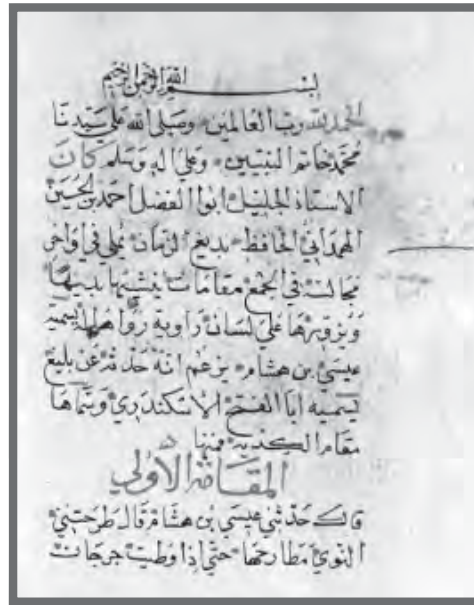 بسم الله الرحمن الرحيم
الحمد لله رب العالمين وصلى الله على سيدنا
محمد خاتم النبيين وعلى اله وسلم كان
الاستاذ الجليل ابوا الفضل احمد بن الحسين
الهمداني الحافظ بديع الزمان يملي في اواخر
مجالسه في الجمع مقامات ينشيها بديها
ويزويها علي لسان راوية رواها له يسميه
عيسي بن هشام يزعم انه حدثه عن بليغ
يسميه ابا الفتح الاسكندري وسماها
مقام الكدية فمنها
المقامة الاولي
قال حدثني عيسي بن هشام قال طرحتني
النوي مطارحها حتي اذا وطيت جرجان